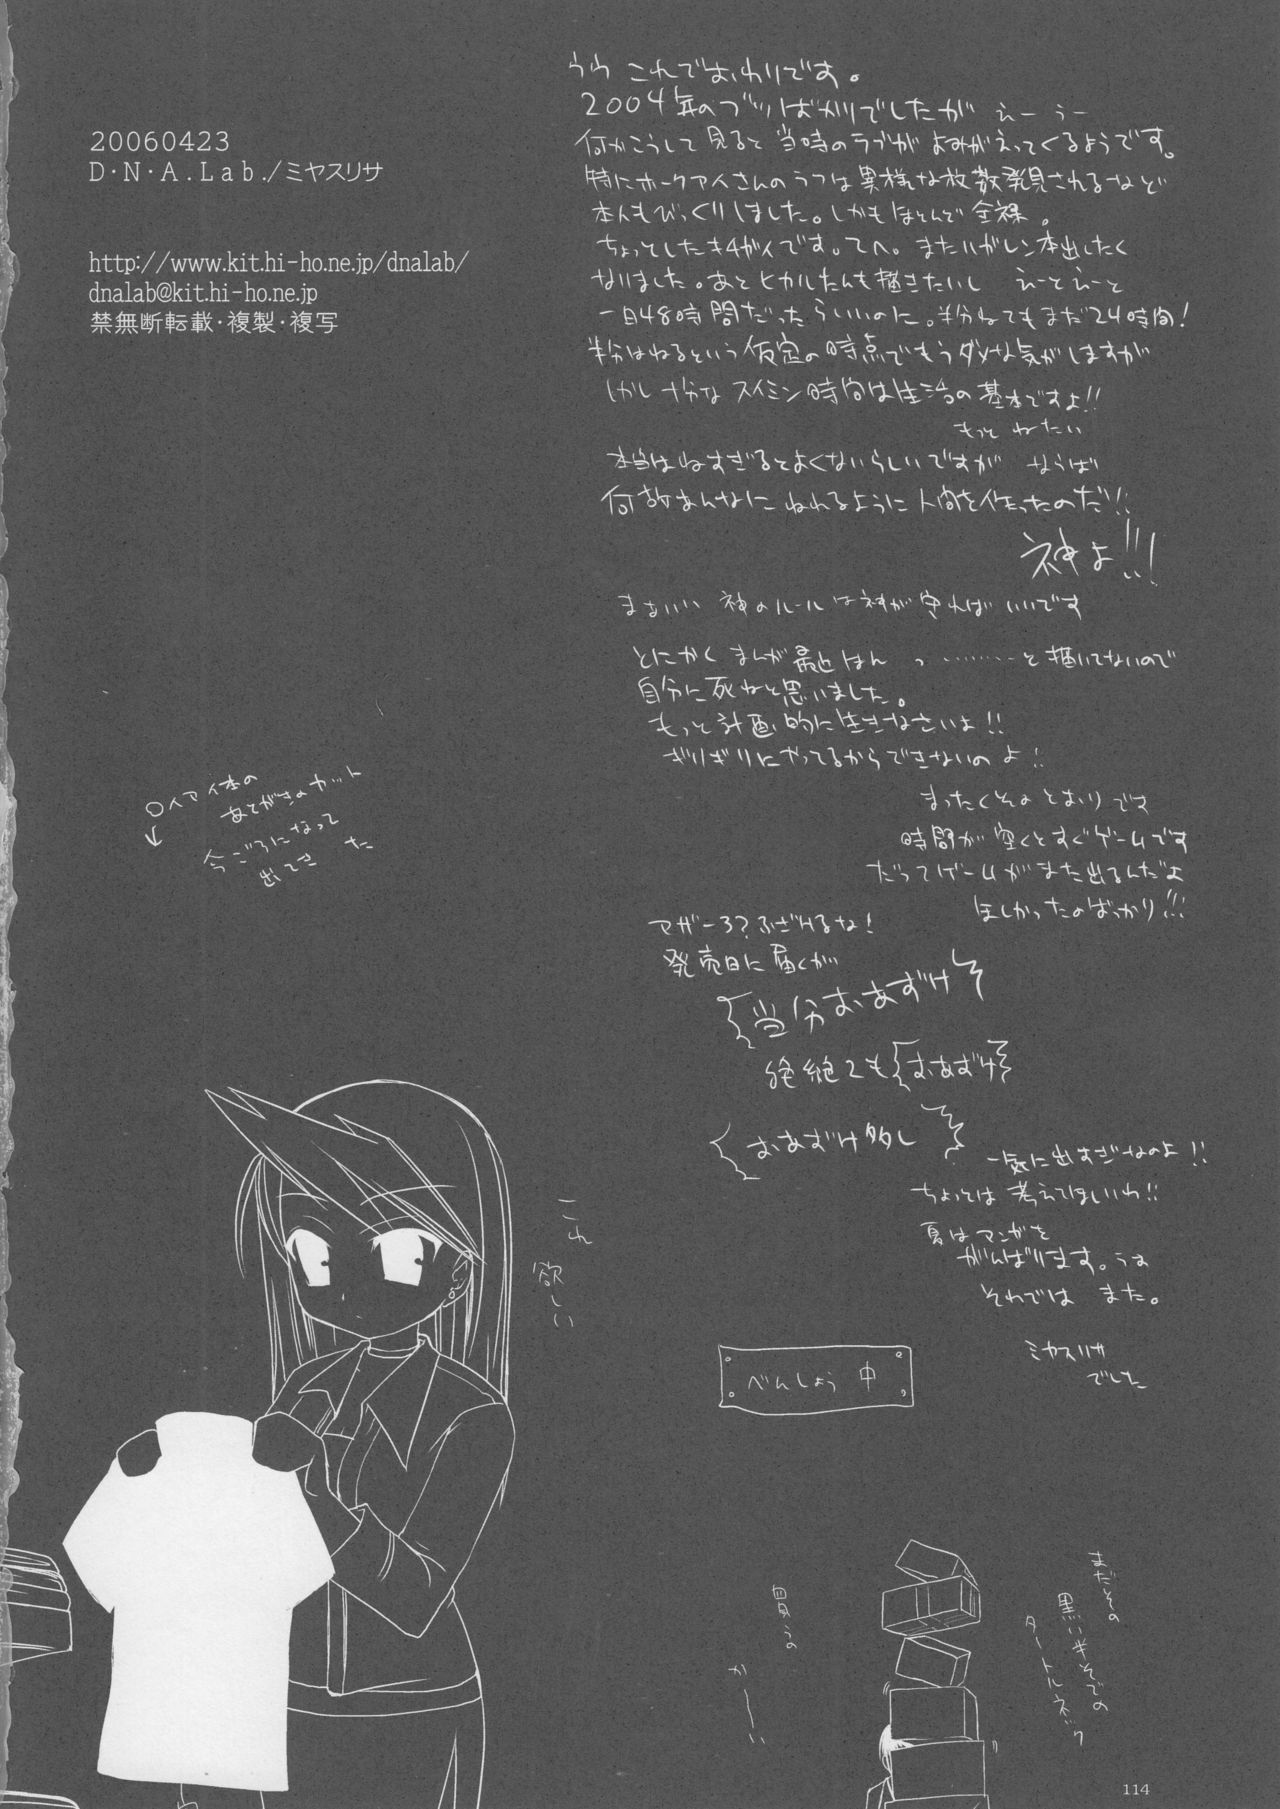 20060423
D・N・A.Lab./ミヤスリサ
http://www.kit.hi-ho.ne.jp/dnalab/
dnalab@kit.hi-ho.ne.jp
禁無断転載・複製・複写
うう これでおわりです。
2004年のブツばかりでしたが えー うー
何かこうして見ると当時のラブがよみがえってくるようです。
特にホークアイさんのラフは異様な枚数発見されるなど
本人もびっくりしました。しかもほとんど全裸。
ちょっとしたキ4ガイです。てへ。またハガレン本出したく
なりました。あとヒカルたんも描きたいし えーとえーと
一日48時間だったらいいのに。半分ねてもまだ24時間!
半分はねるという仮定の時点でもうダメな気がしますが
しかし十分なスイミン時間は生活の基本ですよ!!
もっと ねたい
本当はねすぎるとよくないらしいですが ならば
何故あんなにねれるように人間を作ったのだ!!
神よ!!!
まあいい 神のルールは神が守ればいいです
とにかくまんが最近はんっ………と描いてないので
自分に死ねと思いました。
もっと計画的に生きなさいよ!!
ぎりぎりにやってるからできないのよ!
まったくそのとおりです
時間が空くとすぐゲームです
だってゲームがまた出るんだよ
ほしかったのばっかり!!!
マザー3?ふざけるな!
発売日に届くが
当分おあずけ
絶絶2もおあずけ
おあずけ多し
一気に出すぎなのよ!!
ちょっとは考えてほしいわ!!
夏はマンガを
がんばります。うお
それでは また。
ミヤスリサ
でした
べんしょう中
○イアイ本の
あとがきのカット
今ごろになって
出てきた
これ
欲しい
まだその
黒い半そでの
タートルネック
買うの
かーい
114